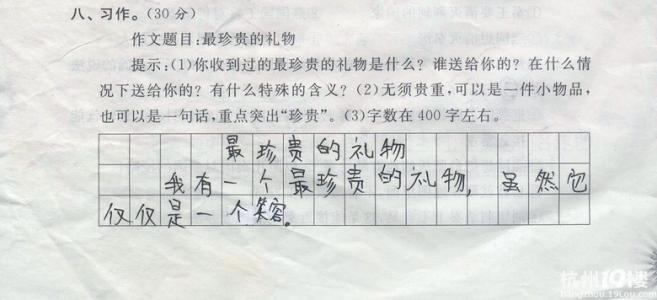 八、习作。(30分)
作文题目:最珍贵的礼物
提示:(1)你收到过的最珍贵的礼物是什么?谁送给你的?在什么情
况下送给你的?有什么特殊的含义?(2)无须贵重,可以是一件小物品,
也可以是一句话,重点突出“珍贵”。(3)字数在400字左右。
最珍贵的礼物
我有一个最珍贵的礼物,虽然它
仅仅是一个笑容。
杭州19楼
hangzhou.19lou.com